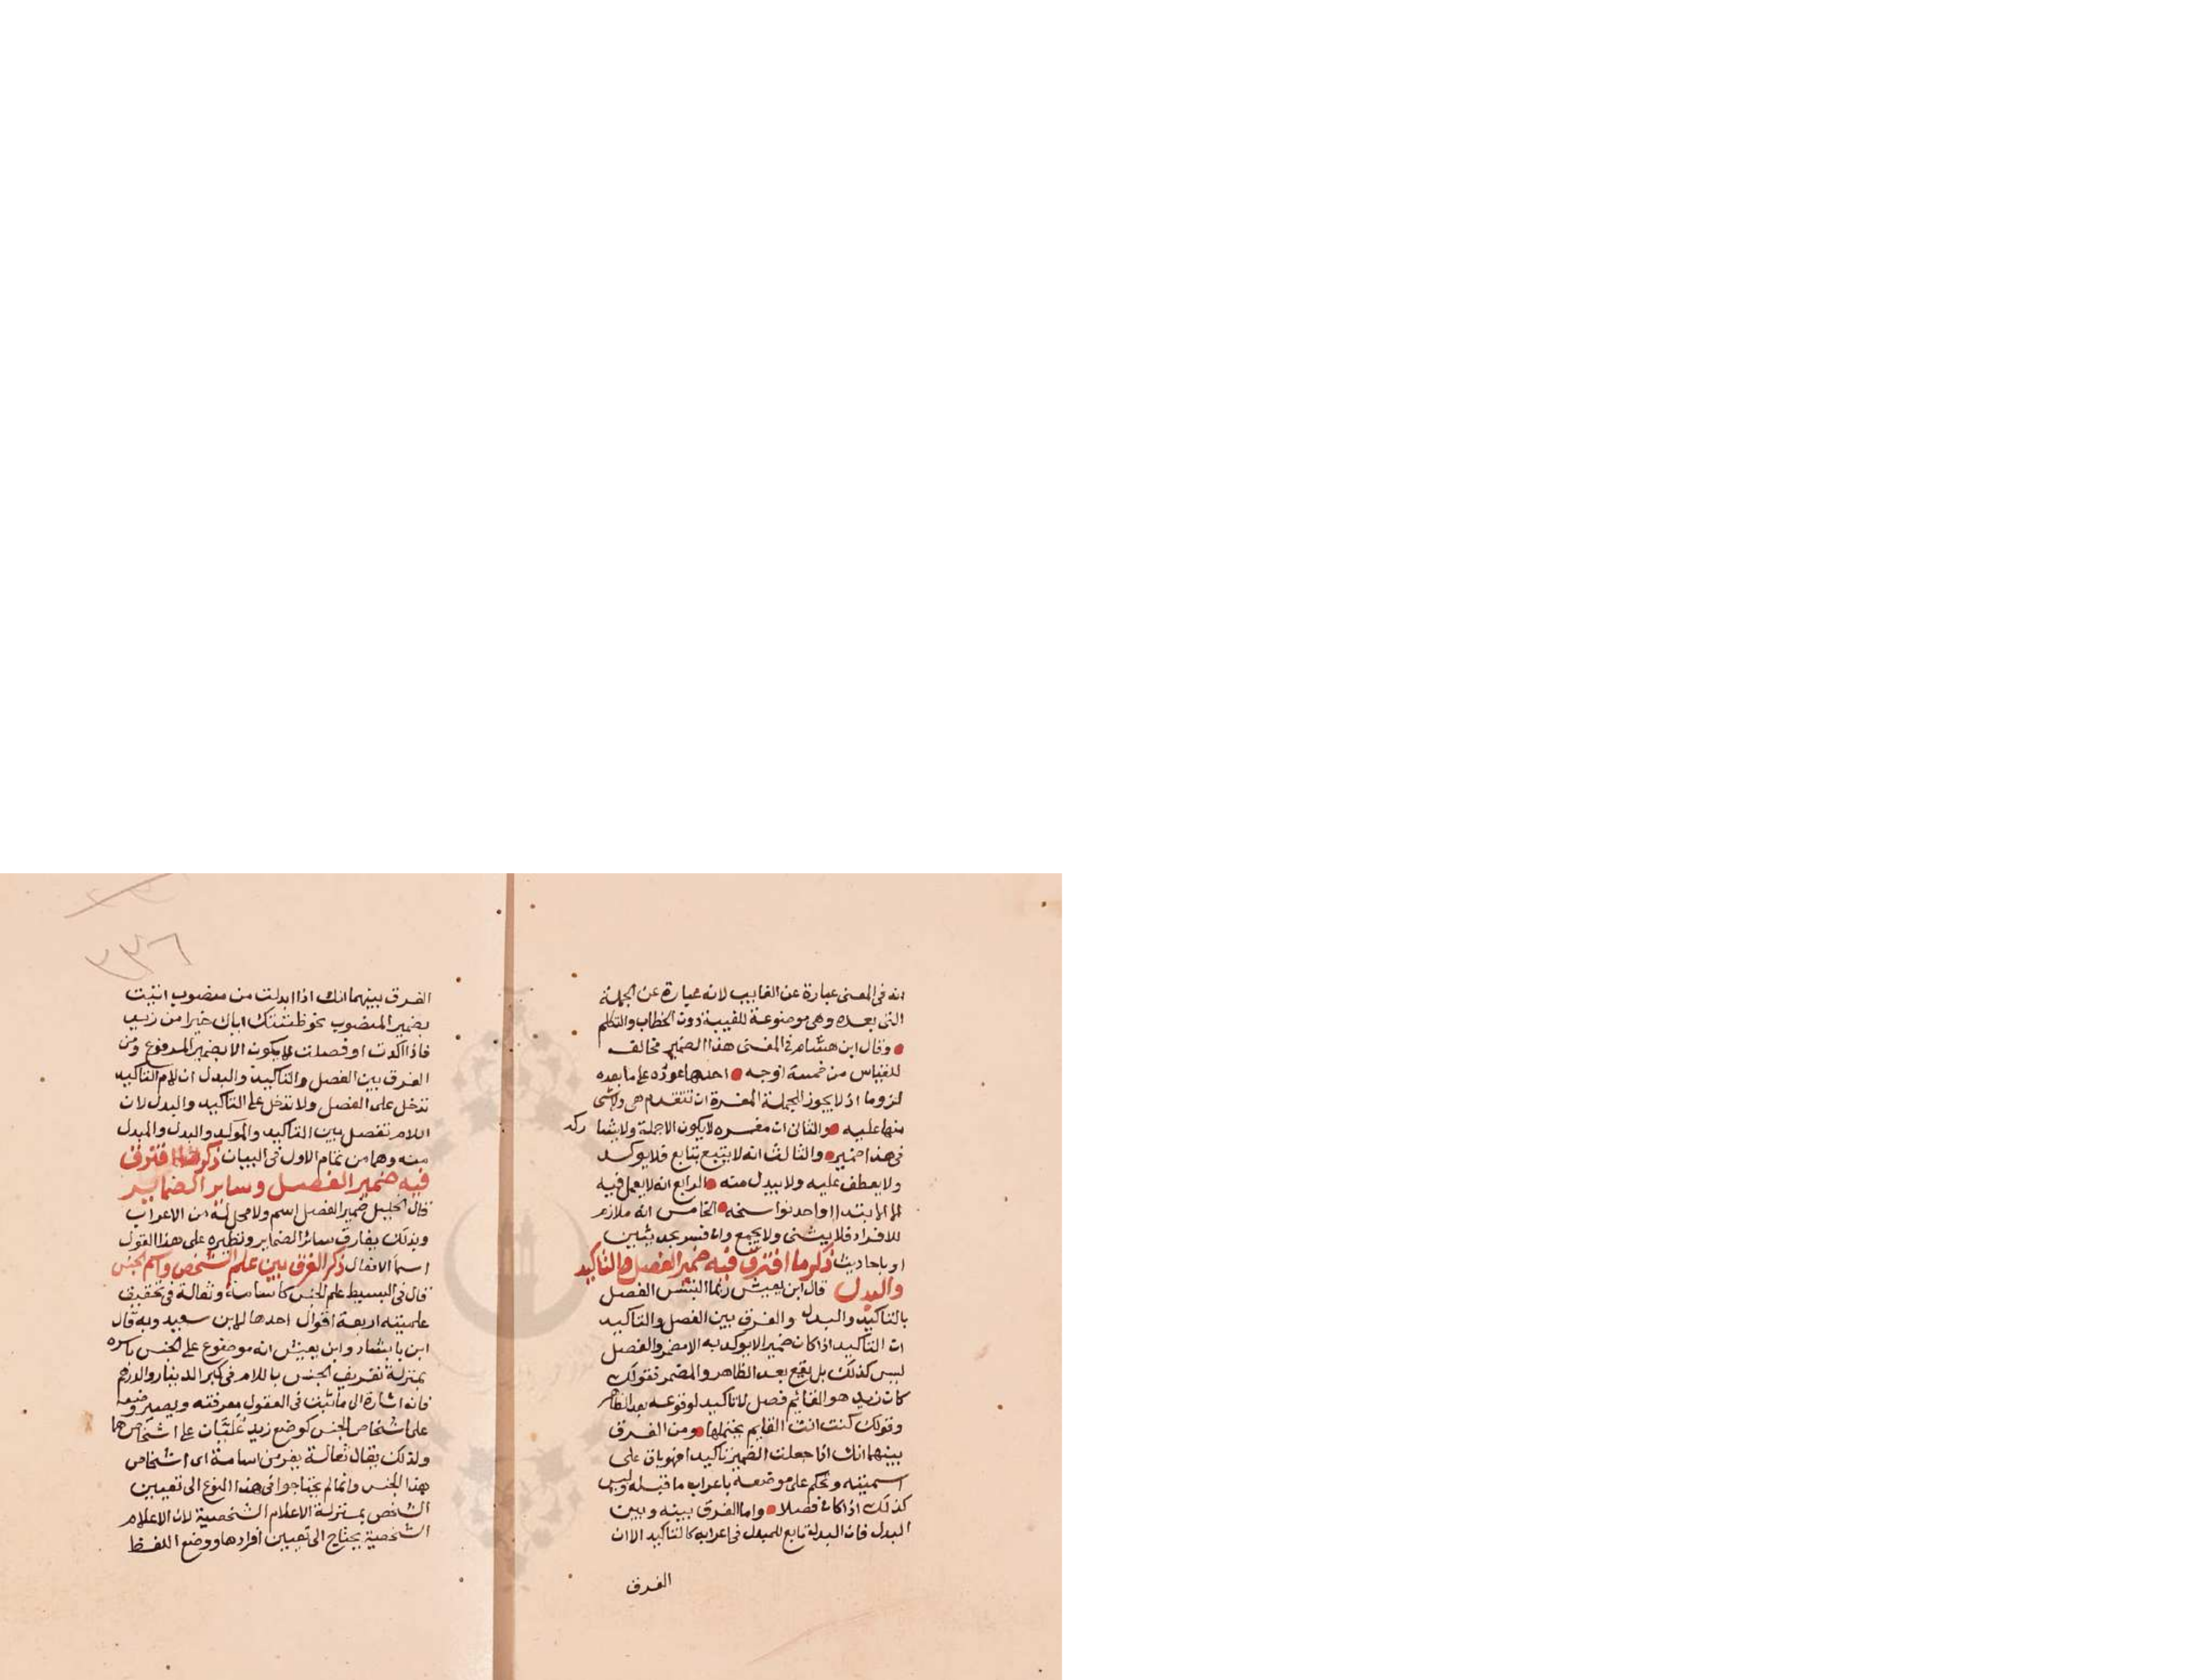 انه فى المعنى عبارة عن الغايب لانه عبارة عن الجملة
التى بعده وهى موضوعة للغيبة دون الخطاب والتكلم
وقال ابن هشام فى المغنى هذا الضمير مخالف
للقياس من خمسة اوجه احدها عوده على ما بعده
لزوما اذ لا يجوز للجملة المفسرة ان تتقدم هى ولا شى
منها عليه والثان ان مفسره لا يكون الا جملة ولا يشاركه
فى هذا ضمير والثالث انه لا يتبع بتابع فلا يوكد
ولا يعطف عليه ولا يبدل منه الرابع انه لا يعمل فيه
الا الابتدا او احد نواسخه الخامس انه ملازم
للافراد فلا يثنى ولا يجمع وان فسر بحديثين
او باحاديث ذكر ما افترق فيه ضمير الفصل والتاكيد
والبدل قال ابن يعيش ربما التبس الفصل
بالتاكيد والبدل والفرق بين الفصل والتاكيد
ان التاكيد اذا كان ضميرا لا يوكد به الا مضمر والفصل
ليس كذلك بل يقع بعد الظاهر والمضمر فقولك
كان زيد هو القائم فصل لا تاكيد لوقوعه بعد الظاهر
وقولك كنت انت القايم يحتملها ومن الفرق
بينهما انك اذا جعلت الضمير تاكيدا فهو باق على
اسميته وتحكم على موضعه باعراب ما قبله وليس
كذلك اذا كان فصلا واما الفرق بينه وبين
البدل فان البدل تابع للمبدل فى اعرابه كالتاكيد الا ان
الفرق
٣٣٦
الفرق بينهما انك اذا ابدلت من منصوب اتيت
بضمير المنصوب نحو ظننتك اياك خيرا من زيد
فاذا اكدت او فصلت لا يكون الا بضمير المرفوع ومن
الفرق بين الفصل والتاكيد والبدل ان لام التاكيد
تدخل على الفصل ولا تدخل على التاكيد والبدل لان
اللام تفصل بين التاكيد والموكد والبدل والمبدل
منه وهما من تمام الاول فى البيان ذكر ما افترق
فيه ضمير الفصل وساير الضماير
قال الخليل ضمير الفصل اسم ولا محل له من الاعراب
وبذلك يفارق سائر الضماير ونظيره على هذا القول
اسما الافعال ذكر الفرق بين علم الشخص واسم الجنس
قال فى البسيط علم الجنس كاسامة وثعالة فى تحقيق
علميته اربعة اقوال احدها لابن سعيد وبه قال
ابن بابشاد وابن يعيش انه موضوع على الجنس باسره
بمنزلة تعريف الجنس باللام فى كبر الدينار والدرهم
فانه اشارة الى ما ثبت فى العقول معرفته ويصير وضعه
على اشخاص الجنس كوضع زيد على اشخاصهما
ولذلك يقال ثعالة يفر من اسامة اى اشخاص
هذا الجنس وانما لم يحتاجوا فى هذا النوع الى تعيين
الشخص بمنزلة الاعلام الشخصية لان الاعلام
الشخصية يحتاج الى تعيين افرادها ووضع اللفظ